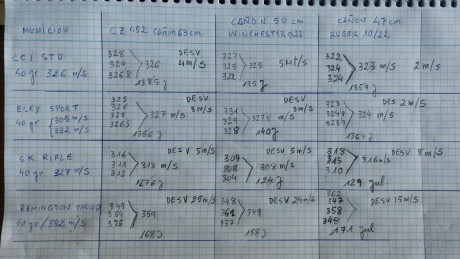 MUNICION
CZ 452 CAÑON 63cm
CAÑON 50 cm
WINCHESTER 922
CAÑON 47cm
RUGER 10/22
CCI STD
40 gr 326 m/s
328
324
3268
326
DESV
4m/s
1385 j
327
325
322
325
5 m/s
135 j
322
324
324
323 m/s
2 m/s
135 j
ELEY SPORT
40 gr
305 m/s
332 m/s
325
326
328
3265
327 m/s
DESV
3 m/s
1366 j
331
329
328
DESV
3 m/s
140 j
323
3249
3239
324 m/s
DES 2 m/s
1364 j
SK RIFLE
40 gr. 327 m/s
316
311
312
313 m/s
DESV 5 m/s
1276 j
309
308
304
308 m/s
DESV 5 m/s
124 j
318
315
310
316 m/s
DESV 8 m/s
129 jul
REMINGTON
40 gr / 382 m/s
349
354
375
359
DESV 25 m/s
168 j
348
361
337
349
DESV 24 m/s
158 j
362
347
358
348
DESV 15 m/s
171 jul